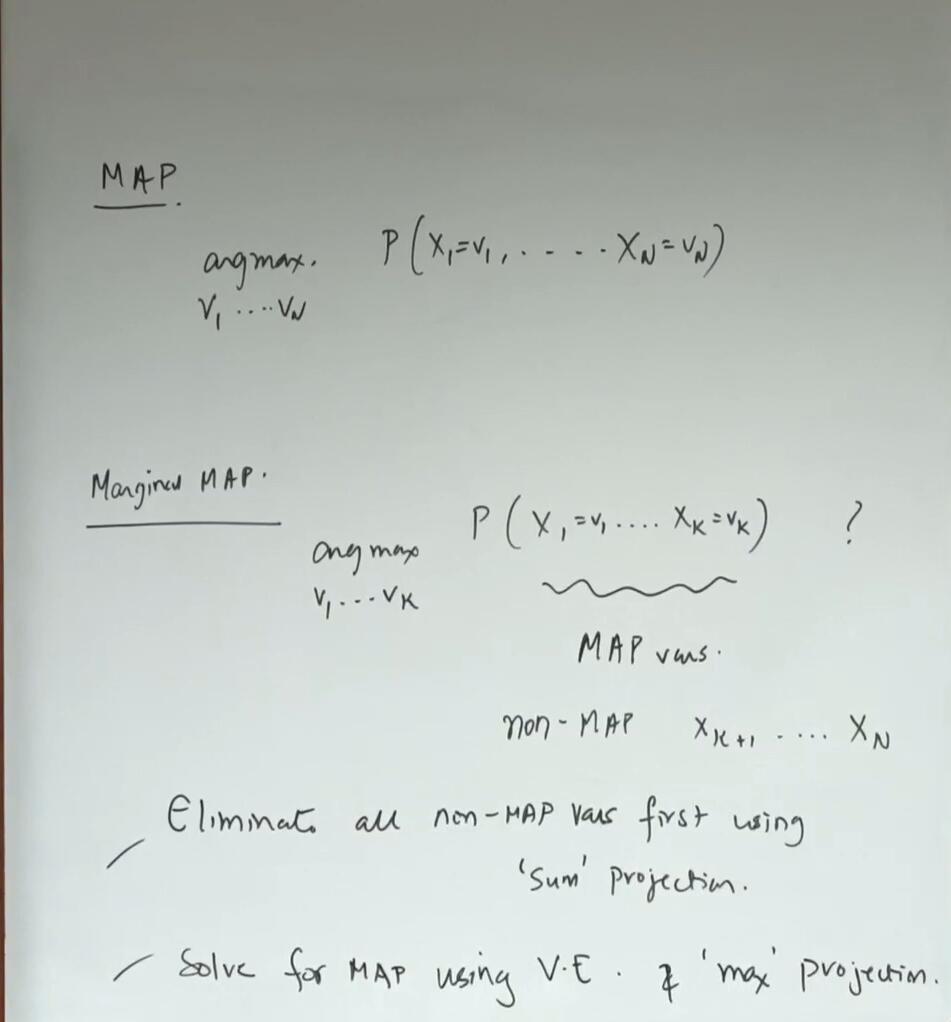 MAP.
argmax. P(X₁=v₁, ..... X_N=v_N)
V₁ ....V_N
Marginal MAP.
argmax P(X₁=v₁ .... X_K=v_K) ?
V₁...V_K
MAP vars.
non-MAP X_{K+1} ..... X_N
Eliminate all non-MAP vars first using
'sum' projection.
Solve for MAP using V.E. & 'max' projection.